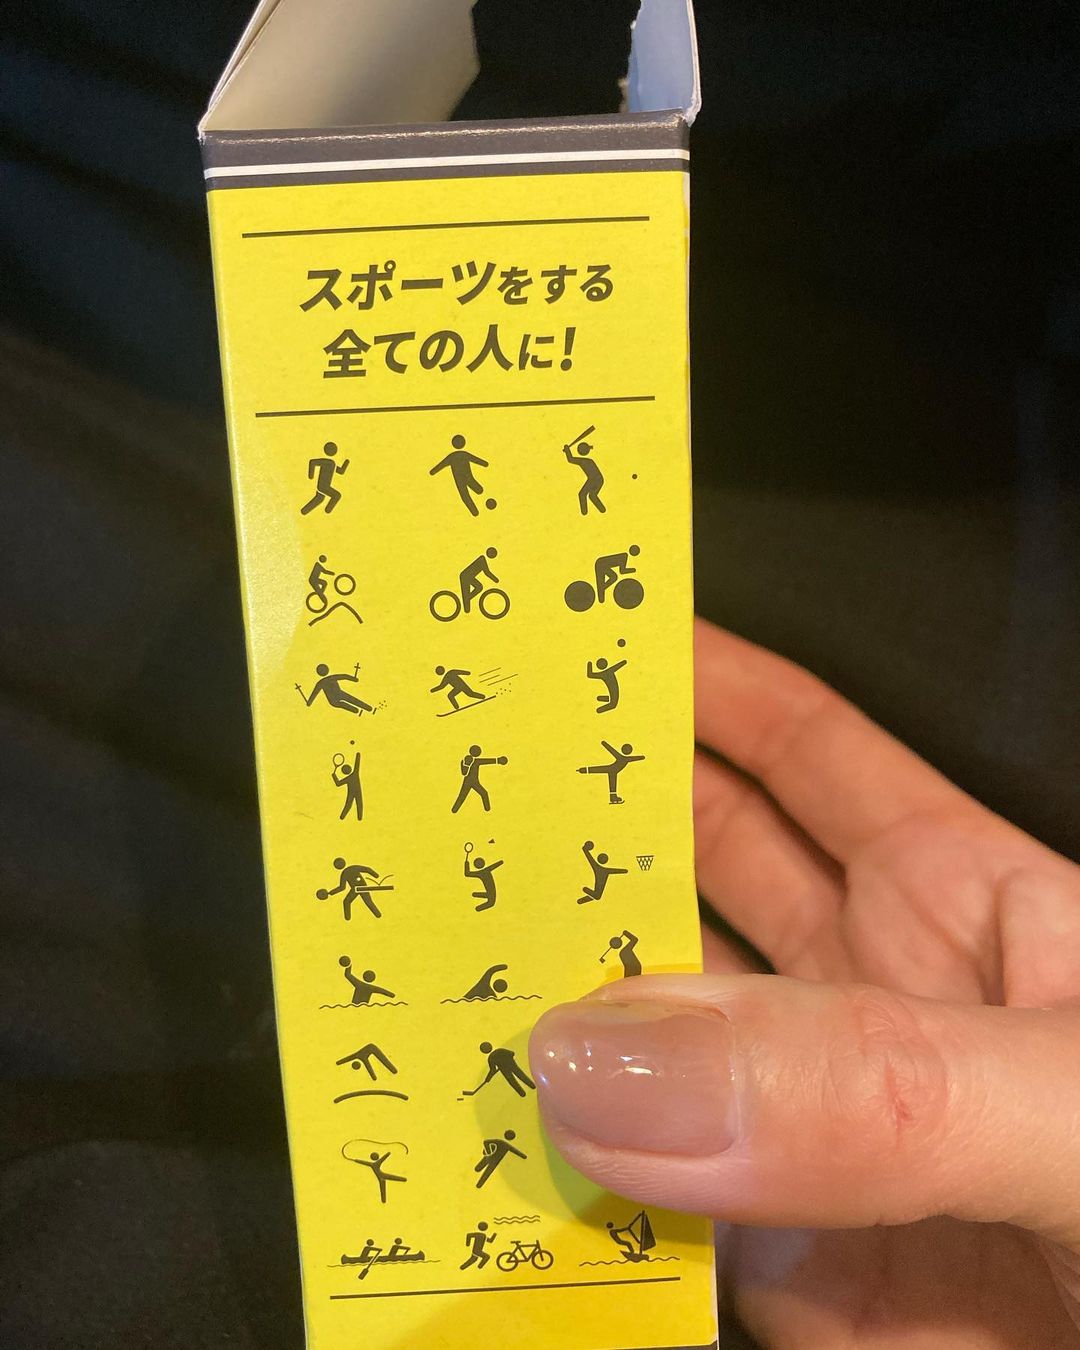 スポーツをする
全ての人に!